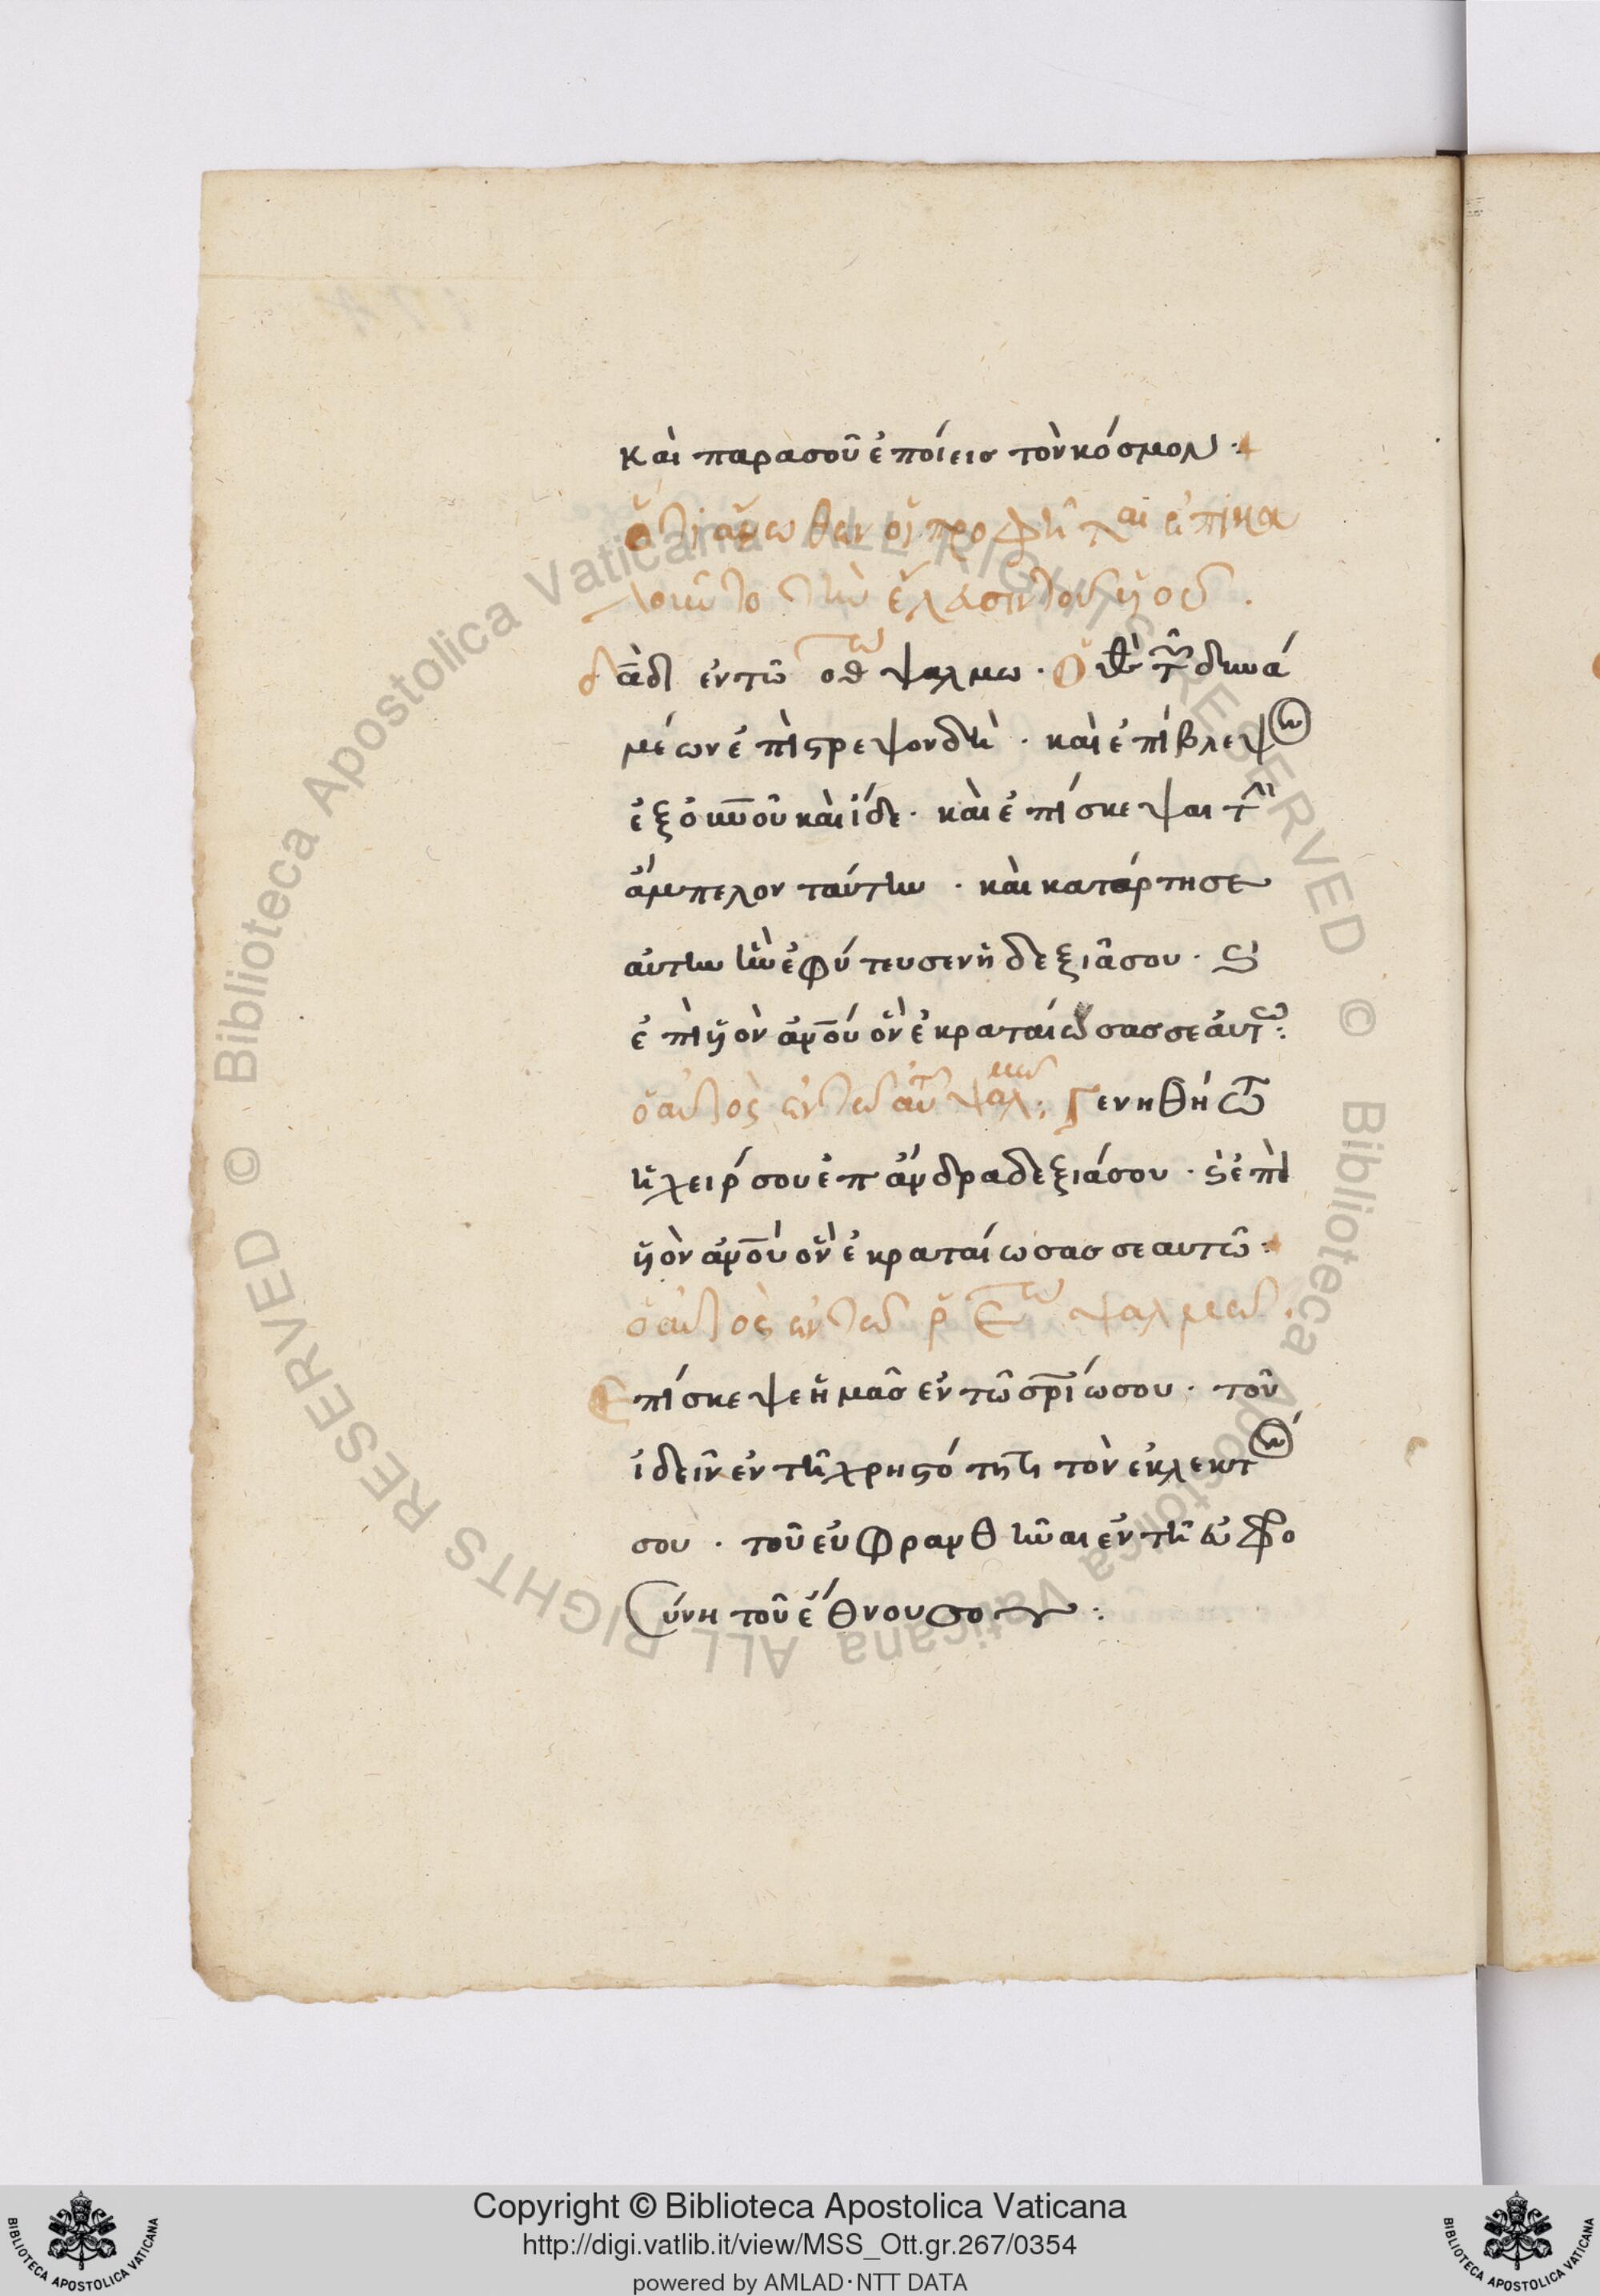 καὶ παρασοῦ ἐποίεισ τὸν κόσμον :+
ὅτι ἄνωθεν οἱ προφῆται ἐπικα
λοιῶτο τὴν ἔλασιν τοῦ υἱοῦ .
δα̅δ ἐν τῶ οθτω ψαλμω . Ὁ θ̅ς τῶν δυνά
μέων ἐπίστρεψον δὴ . καὶ ἐπίβλεψον
ἐξ οὐ̅νοῦ καὶ ἴδε . καὶ ἐπίσκεψαι τὴν
ἄμπελον ταύτην . καὶ κατάρτησε
αὐτὴν ἣν ἐφύτευσεν ἡ δεξιᾶ σου . ϗ
ἐπὶ υἱὸν ἀν̅ου ὃν ἐκραταίωσασ σεαυτῶ :
ὁ αὐτὸς ἐν τῶ αὐτῶ ψαλμῶ : Γενηθήτω
ἡ χείρ σου ἐπ ἄνδρα δεξιάσου . ϗ ἐπὶ
υἱὸν ἀν̅ου ὃν ἐκραταίωσασ σεαυτῶ :+
ὁ αὐτὸς ἐν τῶ ρετω ψαλμῶ .
Ἐπίσκεψε ἡμᾶσ ἐν τῶ σ̅ρ̅ίω σου . τοῦ
ἰδεῖν ἐν τῆ χρηστότητι τὸν ἐκλεκτών
σου . τοῦ εὐφρανθῆναι ἐν τῆ εὐφρο
σύνη τοῦ ἔθνου σου :
Copyright © Biblioteca Apostolica Vaticana
http://digi.vatlib.it/view/MSS_Ott.gr.267/0354
powered by AMLAD·NTT DATA
BIBLIOTECA APOSTOLICA VATICANA
BIBLIOTECA APOSTOLICA VATICANA
© Biblioteca Apostolica Vaticana ALL RIGHTS RESERVED © Biblioteca Apostolica Vaticana ALL RIGHTS RESERVED